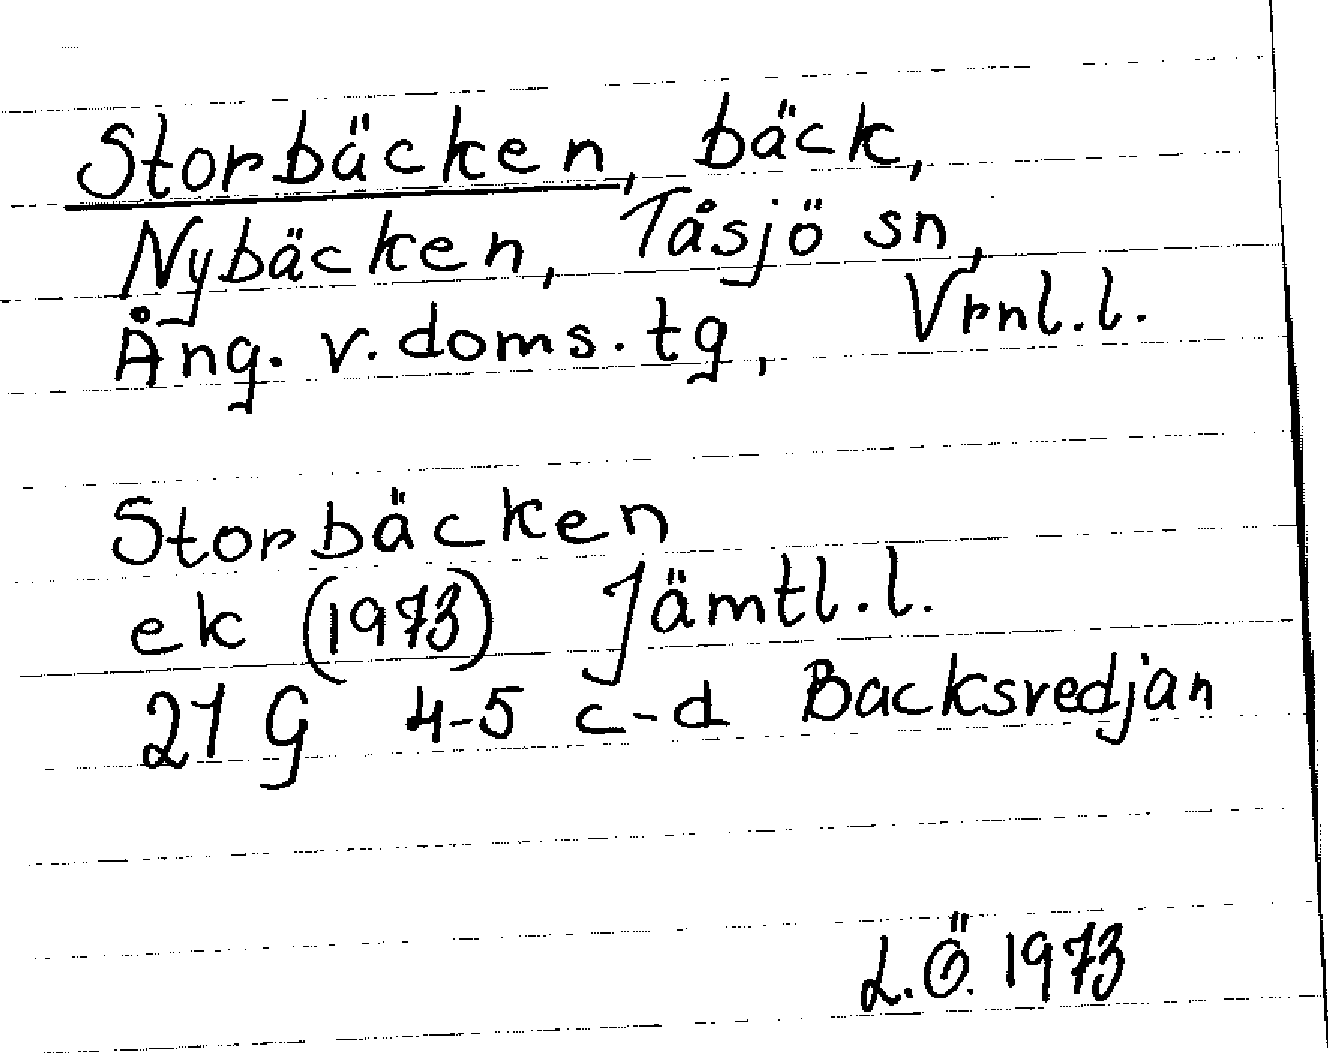 Storbäcken, bäck,
Nybäcken, Tåsjö sn,
Ång. v. doms. tg, Vrnl.l.
Storbäcken
ek (1973) Jämtl.l.
21 G 4-5 c-d Backsredjan
L.Ö. 1973